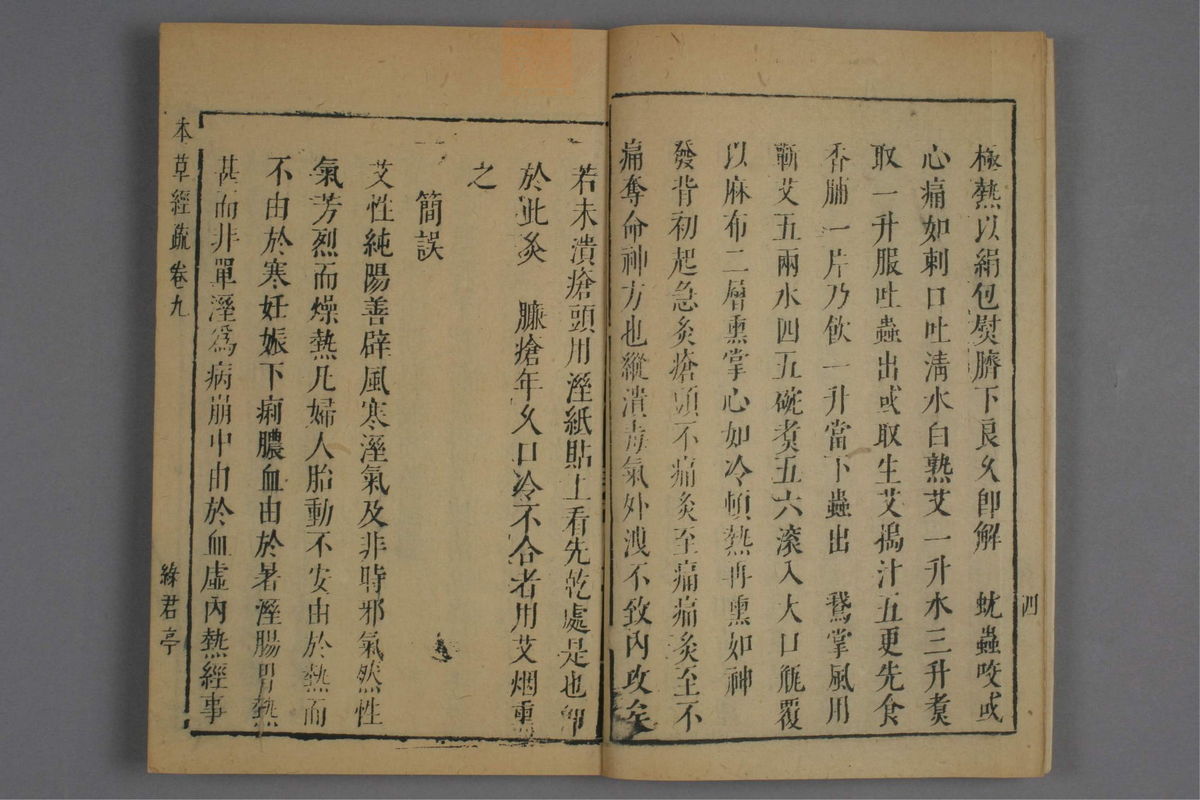 極熱以絹包熨臍下良久卽解　蚘蟲咬或
心痛如刺口吐淸水白熟艾一升水三升煑
取一升服吐蟲出或取生艾搗汁五更先食
香脯一片乃飲一升當下蟲出　鵞掌風用
蘄艾五兩水四五碗煑五六滾入大口甁覆
以麻布二層熏掌心如冷頓熱再熏如神
發背初起急灸瘡頭不痛灸至痛痛灸至不
痛奪命神方也縱潰毒氣外洩不致內攻矣
四
若未潰瘡頭用溼紙貼上看先乾處是也卽
於此灸　臁瘡年久口冷不合者用艾烟熏
之
簡誤
艾性純陽善辟風寒溼氣及非時邪氣然性
氣芳烈而燥熱凡婦人胎動不安由於熱而
不由於寒妊娠下痢膿血由於暑溼腸胃熱
甚而非單溼爲病崩中由於血虛內熱經事
本草經疏 卷九
綠君亭